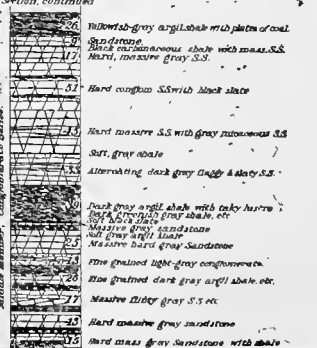 Section, continued
26. Yellowish-gray argil. shale with plates of coal
9 Sandstone
Black carbonaceous shale with mass. S.S.
17 Hard, massive gray S.S.
51 Hard conglom S.S with black slate
13 Hard massive S.S with gray micaceous S.S.
Soft, gray shale
33 Alternating dark gray flaggy & slaty S.S.
39 Dark gray argil shale with taky lustre
Dark greenish gray shale, etc
Soft black slate
Massive gray sandstone
Soft gray argil shale
25 Massive hard gray Sandstone
13 Fine grained light-gray conglomerate
28 Fine grained dark gray argil shale, etc.
17 Massive flinty gray S.S etc
13 Hard massive gray sandstone
15 Hard mass gray Sandstone with shale
Conglomerate Series.